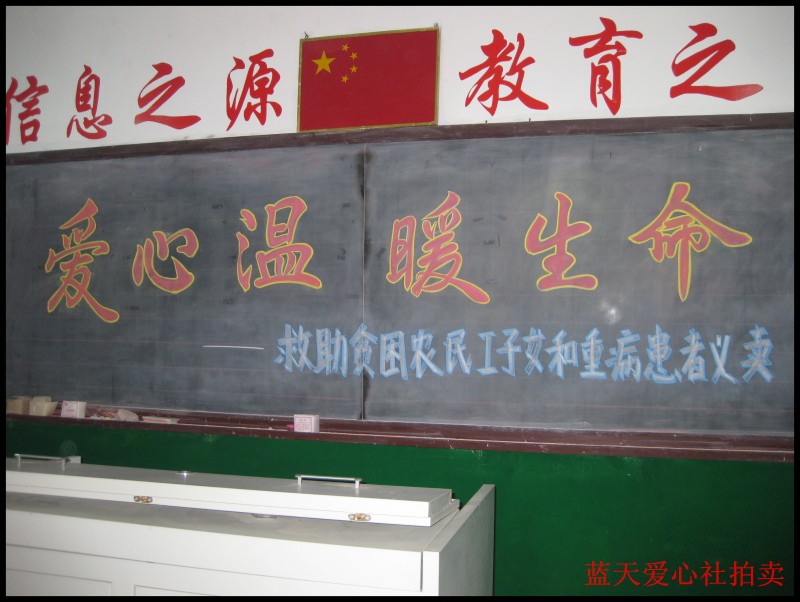 信息之源 教育之
爱心温暖生命
——救助贫困农民工子女和重病患者义卖
蓝天爱心社拍卖